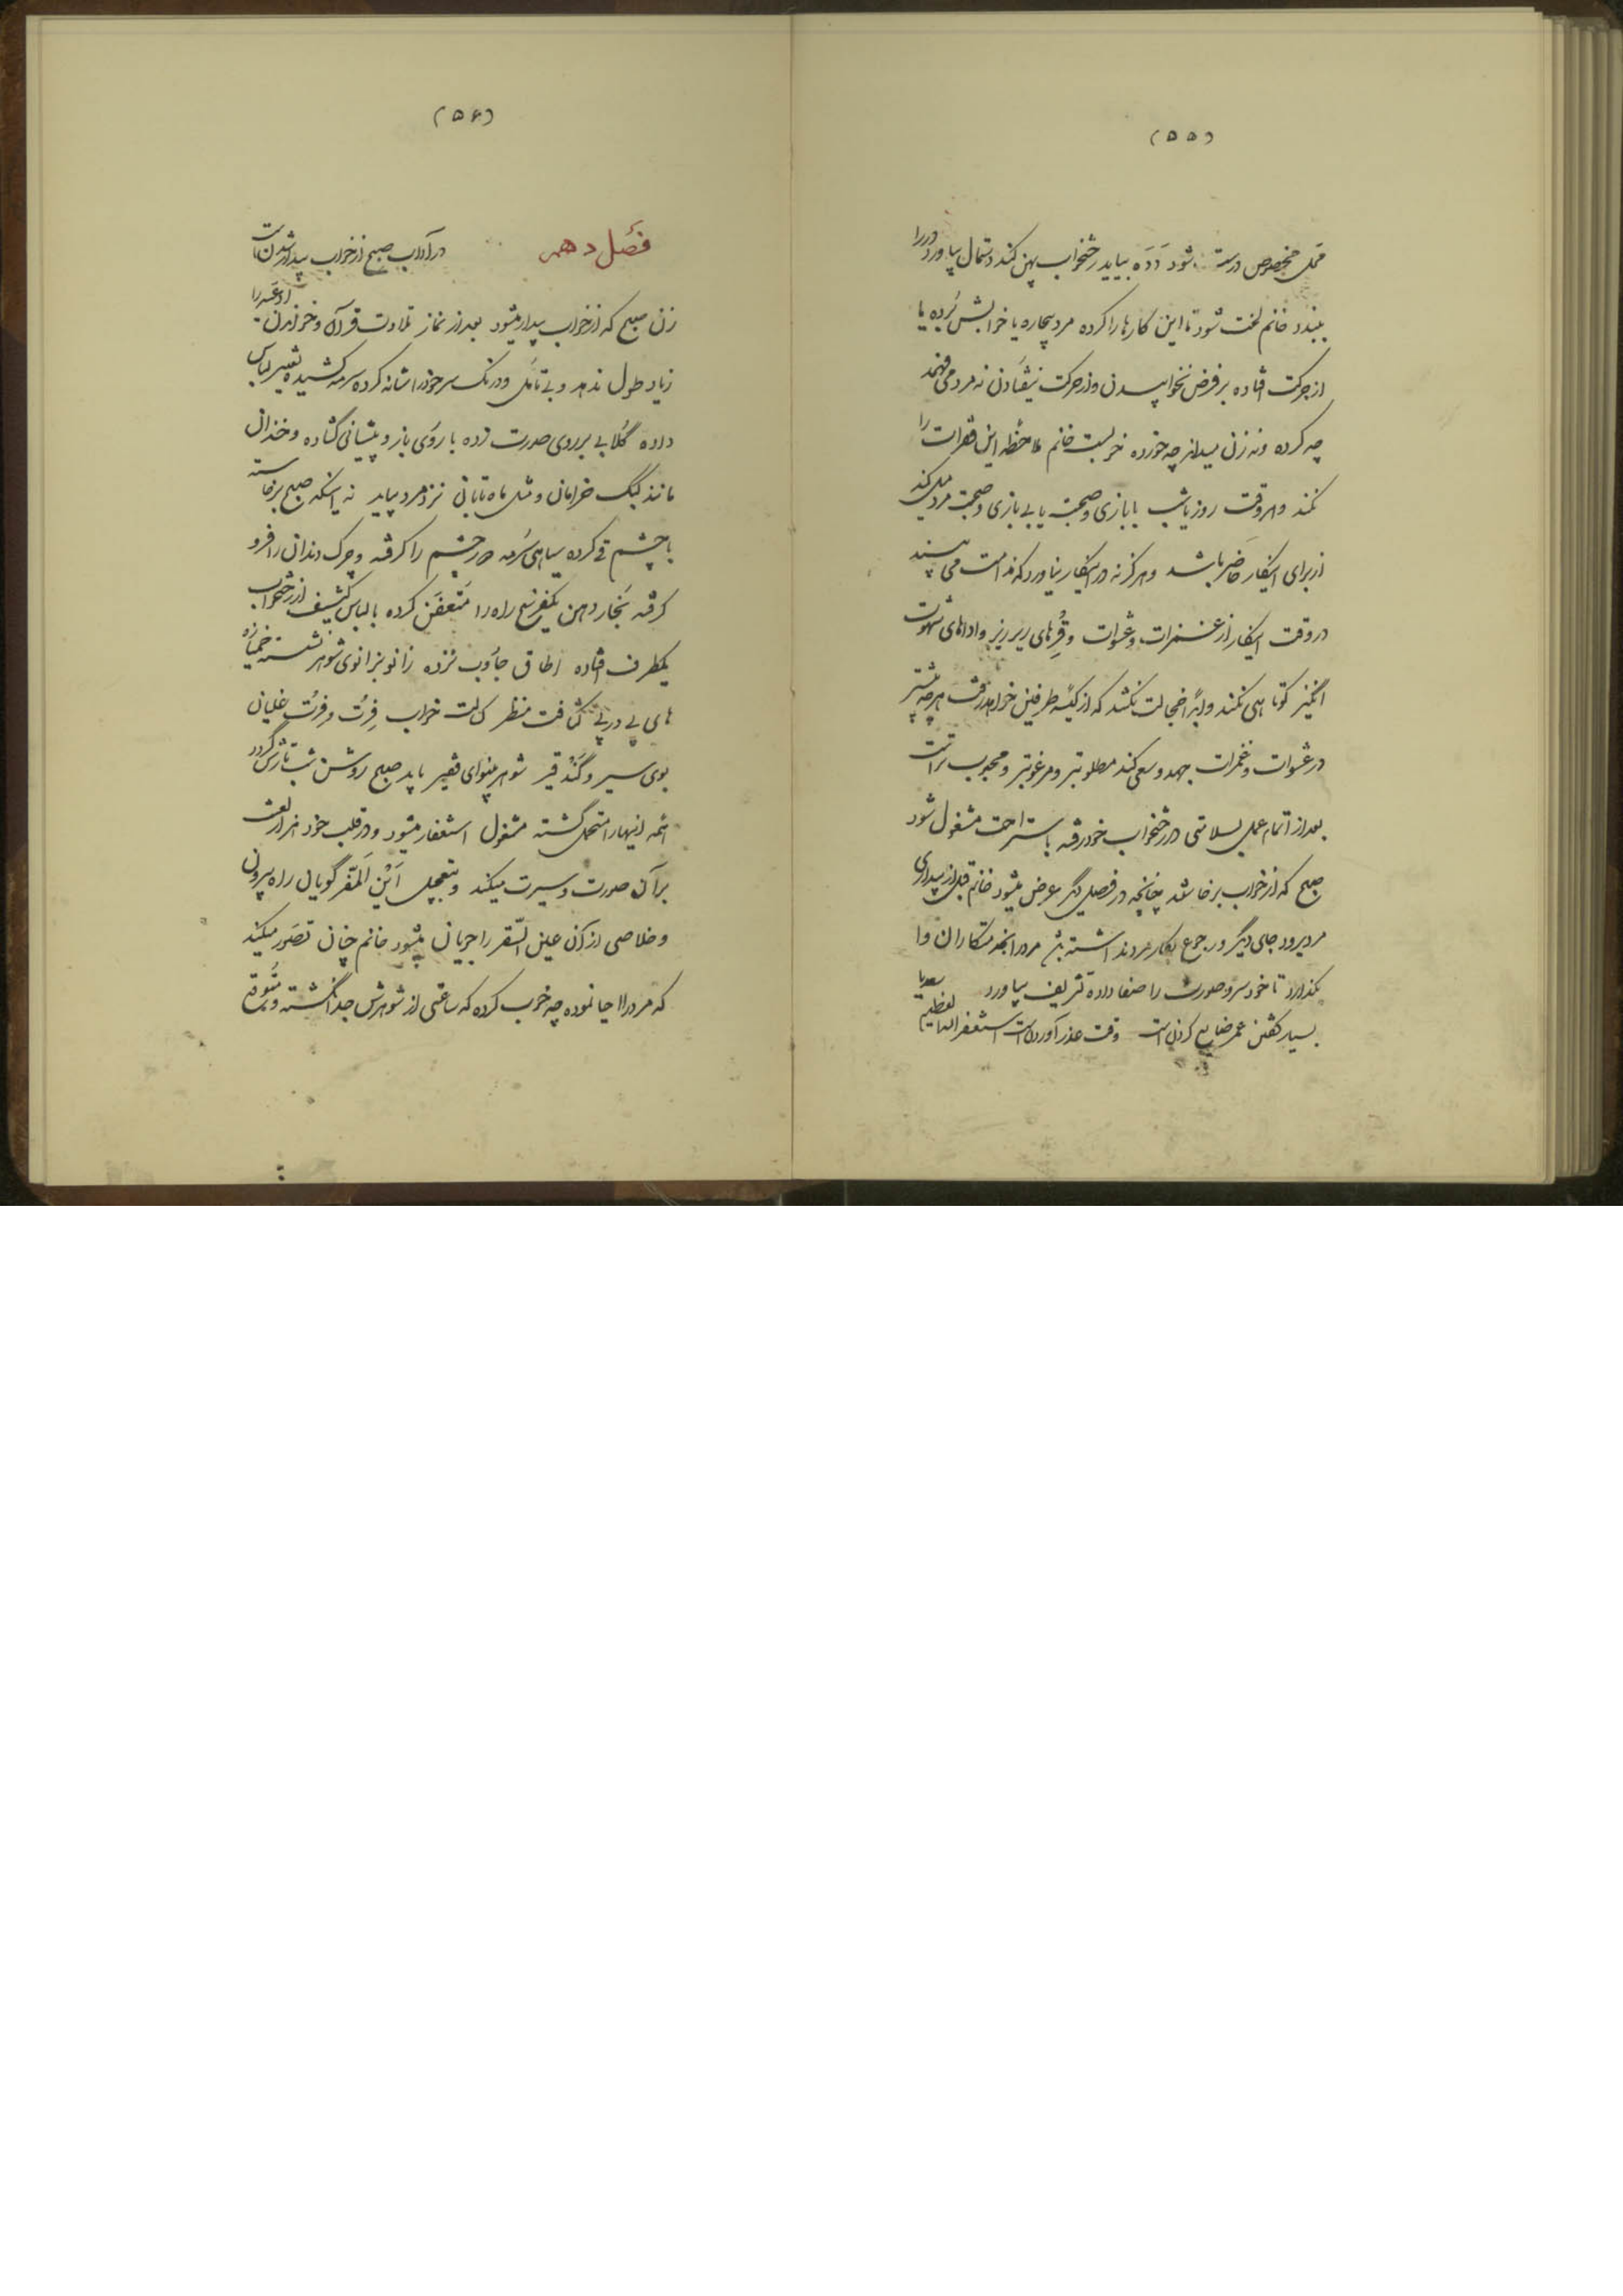 (۵۵)
محل مخصوص درست شود دَدَه بیاید رختخواب پهن کند دستمال بیاورد در را
ببندد خانم لخت شود تا این کارها را کرده مرد بیچاره یا خوابش بُرده یا
از حرکت افتاده بر فرض نخوابیدن و از حرکت نیفتادن نه مرد می فهمد
چه کرده و نه زن میداند چه خورده خوبست خانم ملاحظه این فقرات را
نکند و هر وقت روز یا شب با بازی و صحبت یا بی بازی و صحبت مرد میل کند
از برای اینکار حاضر باشد و هرگز نه در اینکار نیاورد که ندامت می بیند
در وقت اینکار از غمزات و عشوات و قِرهای ریز ریز و اداهای شهوت
انگیز کوتاهی نکند و ابداً خجالت نکشد که از کیسه طرفین خواهد رفت هر چه بیشتر
در عشوات و غمزات جهد و سعی کند مطلوبتر و مرغوبتر و محبوب تر است
بعد از اتمام عمل بسلامتی در رختخواب خود رفته باستراحت مشغول شود
صبح که از خواب برخاستند چنانچه در فصل دیگر عرض میشود خانم قبل از بیداری
مرد برود جای دیگر و رجوع بکار مرد نداشته باشد مرد را بخدمتکاران وا
بگذارد تا خود سر و صورت را صفا داده تشریف بیاورد سعدیا
بسیار گفتن عمر ضایع کردن است وقت عذر آوردن است استغفرالله العظیم
(۵۶)
فصل دهم در آداب صبح از خواب بیدار شدن است
زن صبح که از خواب بیدار میشود بعد از نماز تلاوت قرآن و خواندن ادعیه را
زیاد طول ندهد و بی تامل و درنک سر خود را شانه کرده سرمه کشیده تغییر لباس
داده گلابی بر روی صورت زده با روی باز و پیشانی گشاده و خندان
مانند کبک خرامان و مثل ماه تابان نزد مرد بیاید نه اینکه صبح برخاسته
با چشم قی کرده سیاهی سرمه دور چشم را گرفته و چرک دندان را فرو
گرفته بخار دهن یکفرسخ راه را متعفن کرده با لباس کثیف از رختخواب
یکطرف افتاده اطاق جاروب نزده زانو بزانوی شوهر نشسته خمیازه
های پی در پی کثافت منظر کسالت خواب فِرت و فِرت غلیان
بوی سیر و گند قیر شوهر بینوای فقیر باید صبح روشن شب تارش گردد
همه اینها را متحمل گشته مشغول استغفار میشود و در قلب خود هزار لعنت
بر آن صورت و سیرت میکند و بتعجیل اَیْنَ اَلمَفَر گویان راه بیرون
و خلاصی از آن عین السّقر را جویان میشود خانم چنان تصور میکند
که مرد را احیا نموده چه خوب کرده که ساعتی از شوهرش جدا نگشته و متوقع